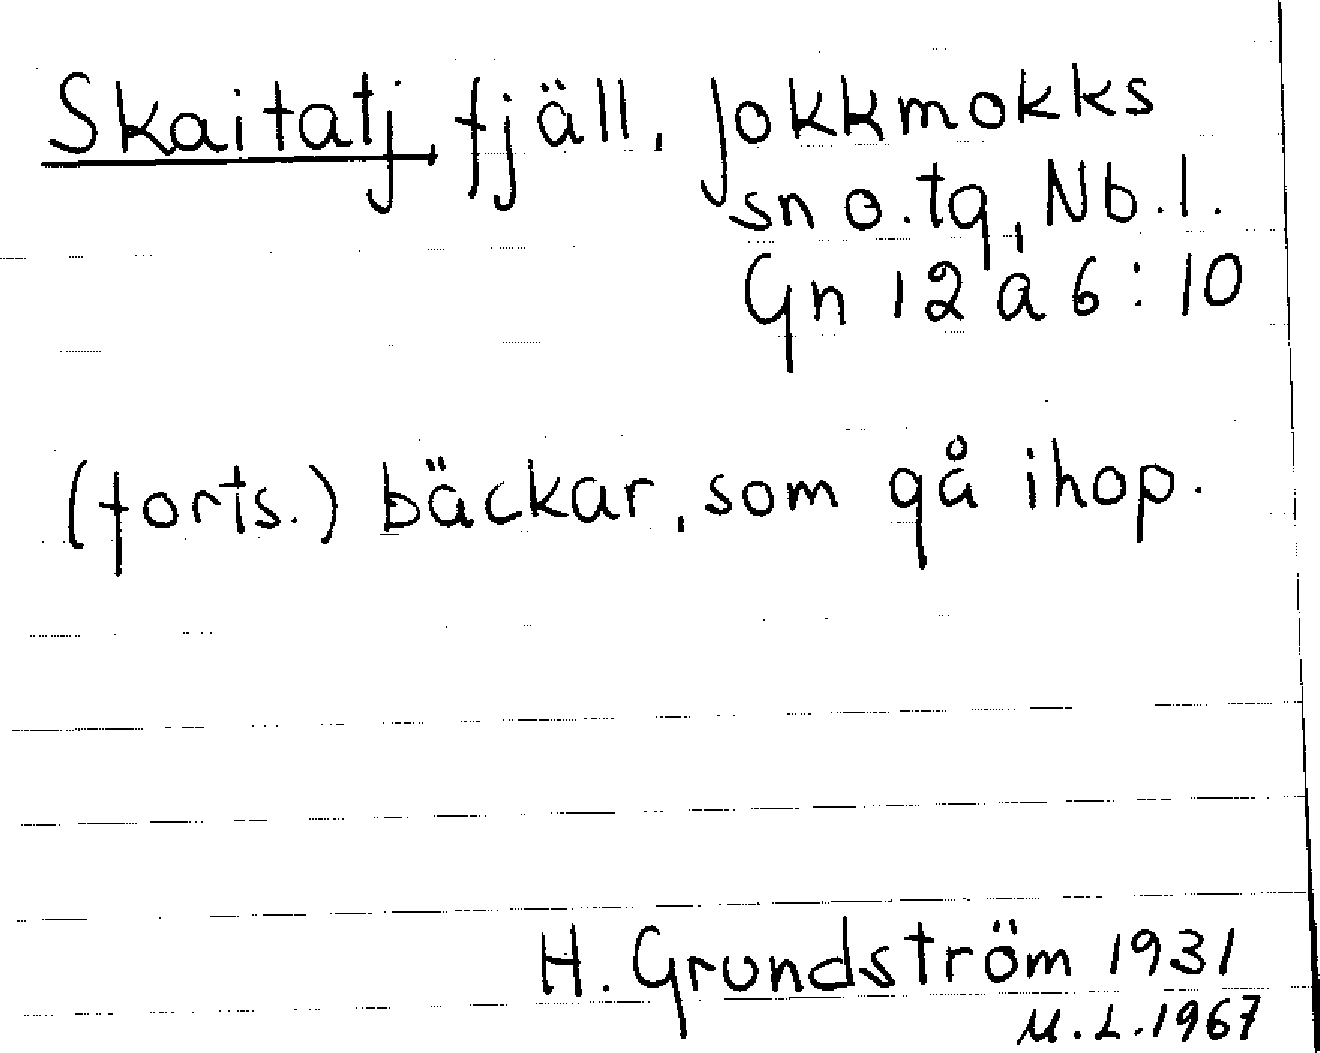 Skaitatj, fjäll, Jokkmokks
sn o. tg, Nb. l.
Gn 12 a 6:10
(forts.) bäckar, som gå ihop.
H. Grundström 1931
M.L. 1967